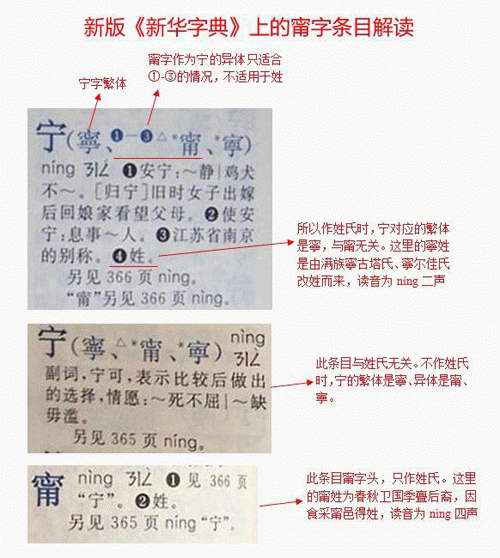 新版《新华字典》上的甯字条目解读
甯字作为宁的异体只适合
①-③的情况，不适用于姓
宁字繁体
宁(寧、❶—❸△*甯、*寜)
níng ㄋㄧㄥˊ ❶安宁：～静|鸡犬
不～。[归宁]旧时女子出嫁
后回娘家看望父母。❷使安
宁：息事～人。❸江苏省南京
的别称。❹姓。
另见 366 页 nìng。
“甯”另见 366 页 nìng。
所以作姓氏时，宁对应的繁体
是寧，与甯无关。这里的寧姓
是由满族寧古塔氏、寧尔佳氏
改姓而来，读音为 níng 二声
宁(寧、△*甯、*寜) nìng ㄋㄧㄥˋ
副词，宁可，表示比较后做出
的选择，情愿：～死不屈|～缺
毋滥。
另见 365 页 níng。
此条目与姓氏无关。不作姓氏
时，宁的繁体是寧、异体是甯、
寜。
甯 nìng ㄋㄧㄥˋ ❶见 366 页
“宁”。❷姓。
另见 365 页 níng “宁”。
此条目甯字头，只作姓氏。这里
的甯姓为春秋卫国季亹后裔，因
食采甯邑得姓，读音为 nìng 四声